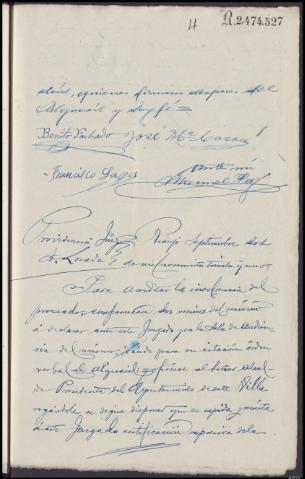 4 R.2.474.527
quienes firman despues del
Alguacil y doy fé =
Benito Machado José Mª
Francisco Ante mi
Manuel
Providencia Juez Septiembre dos
Sr. Losada de mil novecientos treinta y uno.
Para acreditar la insolvencia del
procesado, comparezcan dos vecinos del mismo
á declarar ante este Juzgado y en la sala de Audien
cia del mismo, dando para su citación órden
verbal al Alguacil y ofíciese al Señor Alcalde
Presidente del Ayuntamiento de esta Villa
rogándole se digne disponer que se expida y remita
á este Juzgado certificación expresiva de la